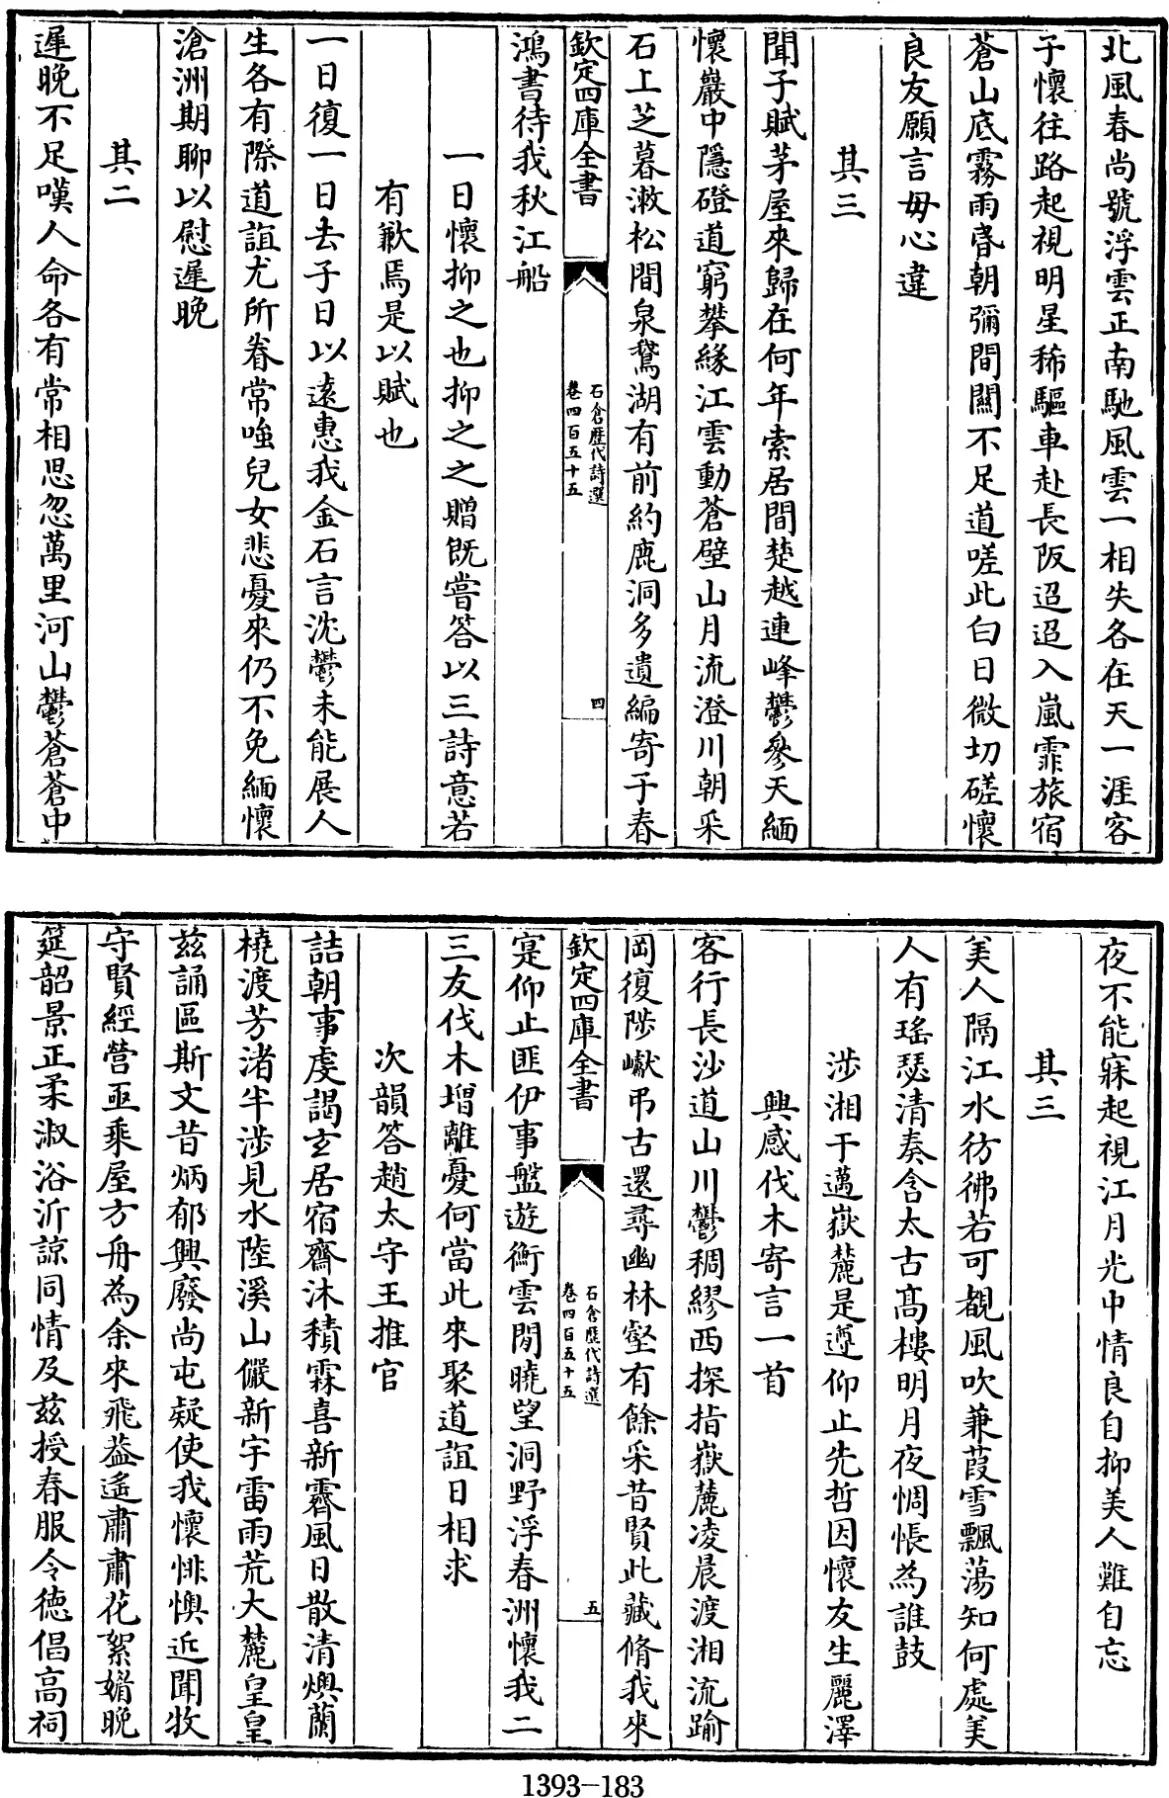 北風春尚號浮雲正南馳風雲一相失各在天一涯客
子懷往路起視明星稀驅車赴長阪迢迢入嵐霏旅宿
蒼山底霧雨昏朝彌間關不足道嗟此白日微切磋懷
良友願言毋心違
其三
聞子賦茅屋來歸在何年索居間楚越連峰鬱參天緬
懷巖中隱磴道窮攀緣江雲動蒼壁山月流澄川朝采
石上芝暮漱松間泉鵞湖有前約鹿洞多遺編寄子春
欽定四庫全書
石倉歷代詩選
卷四百五十五
四
鴻書待我秋江船
一日懷抑之也抑之之贈既嘗答以三詩意若
有歉焉是以賦也
一日復一日去子日以遠惠我金石言沈鬱未能展人
生各有際道誼尤所眷常嗤兒女悲憂來仍不免緬懷
滄洲期聊以慰遲晚
其二
遲晚不足嘆人命各有常相思忽萬里河山鬱蒼蒼中
夜不能寐起視江月光中情良自抑美人難自忘
其三
美人隔江水彷彿若可覩風吹蒹葭雪飄蕩知何處美
人有瑤瑟清奏含太古高樓明月夜惆悵為誰鼓
涉湘于邁嶽麓是遵仰止先哲因懷友生麗澤
興感伐木寄言一首
客行長沙道山川鬱稠繆西探指嶽麓凌晨渡湘流踰
岡復陟巘弔古還尋幽林壑有餘采昔賢此藏脩我來
欽定四庫全書
石倉歷代詩選
卷四百五十五
五
寔仰止匪伊事盤遊衡雲閒曉望洞野浮春洲懷我二
三友伐木增離憂何當此來聚道誼日相求
次韻答趙太守王推官
詰朝事虔謁玄居宿齋沐積霖喜新霽風日散清燠蘭
橈渡芳渚半涉見水陸溪山儼新宇雷雨荒大麓皇皇
兹誦區斯文昔炳郁興廢尚屯疑使我懷悱懊近聞牧
守賢經營亟乘屋方舟為余來飛葢遙肅肅花絮媚晚
筵韶景正柔淑浴沂諒同情及兹授春服令德倡高祠
1393-183